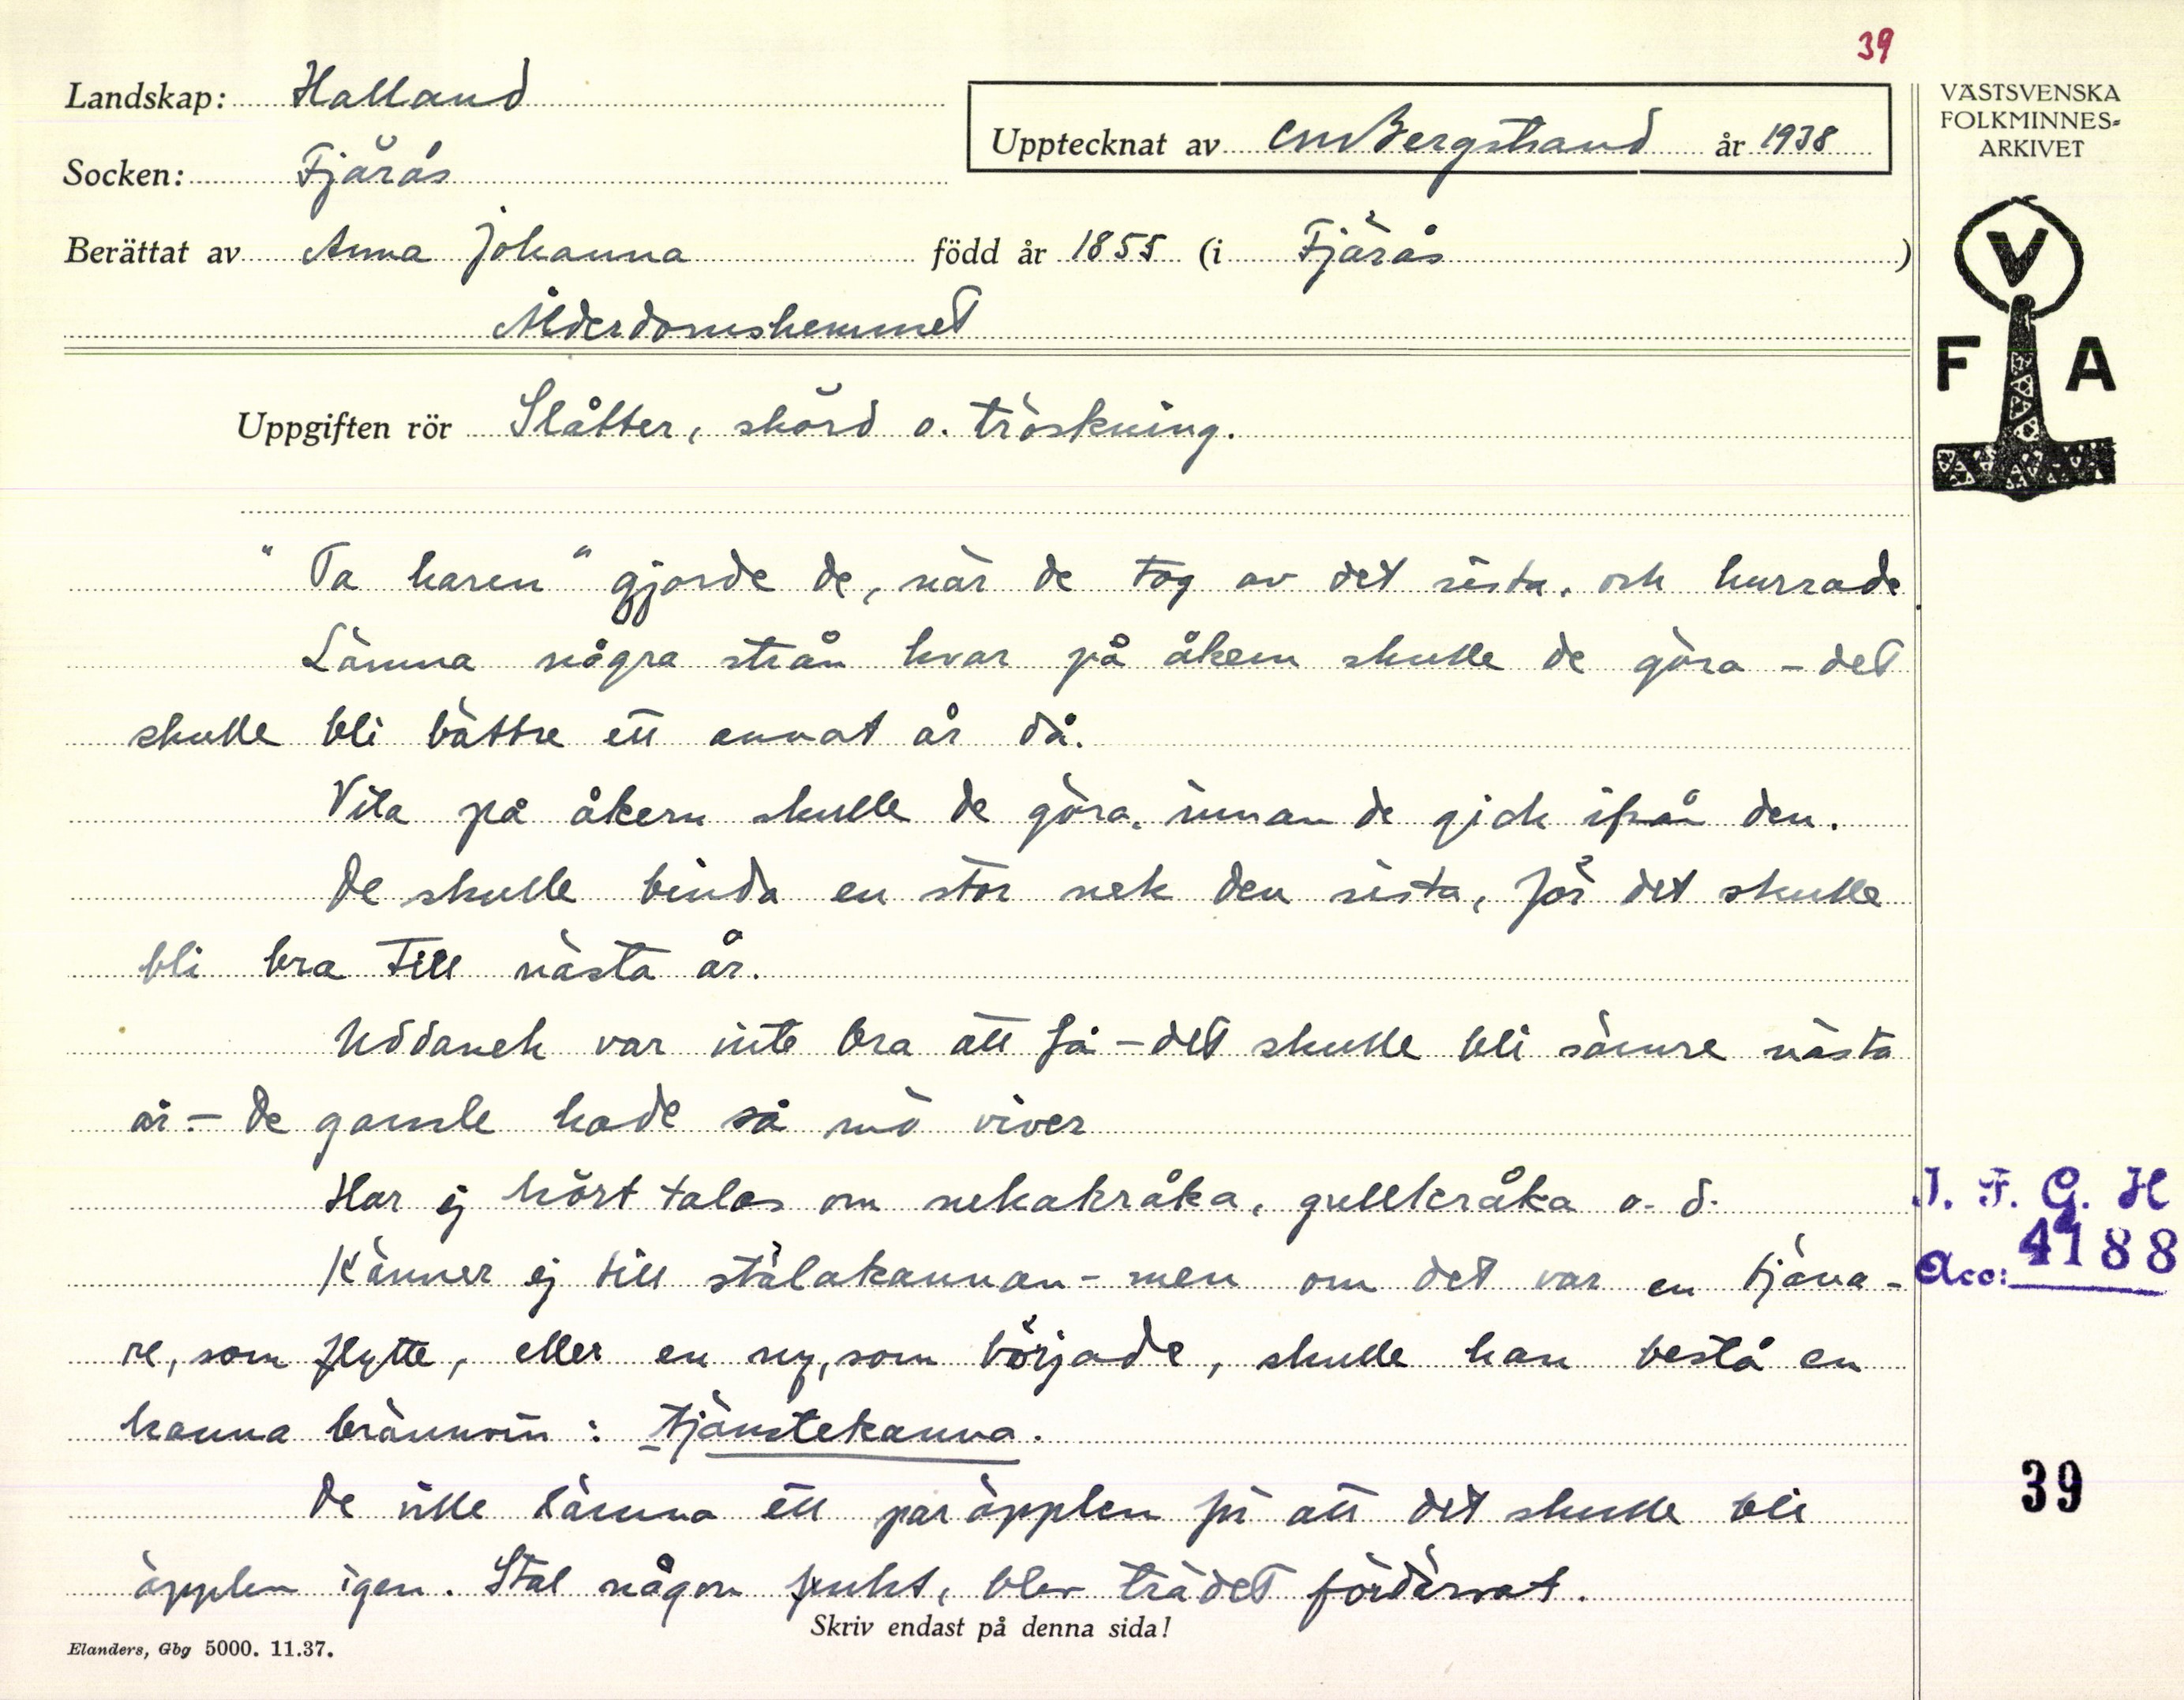 39
Landskap: Halland
Upptecknat av CM Bergstrand år 1938
Socken: Fjärås
Berättat av Anna Johanna född år 1855 (i Fjärås)
Ålderdomshemmet
VÄSTSVENSKA
FOLKMINNES-
ARKIVET
V
F A
Uppgiften rör Slåtter, skörd o. tröskning.
"Ta haren" gjorde de, när de tog av det sista, och hurrade
Lämna några strån kvar på åkern skulle de göra – det
skulle bli bättre ett annat år då.
Vila på åkern skulle de göra, innan de gick ifrån den.
De skulle binda en stor nek den sista, för det skulle
bli bra till nästa år.
Nödanek var inte bra att få – det skulle bli sämre nästa
år – De gamle hade så mö viver
Har ej hört talas om nekakråka, gullkråka o. d.
Känner ej till stålakannan – men om det var en tjäna-
re, som flytte, eller en ny, som började, skulle han bestå en
kanna brännvin: tjänstekanna.
De ville lämna ett par äpplen för att det skulle bli
äpplen igen. Stal någon frukt, blev trädet fördärvat.
I. F. G. H
Acc: 4188
39
Skriv endast på denna sida!
Elanders, Gbg 5000. 11.37.